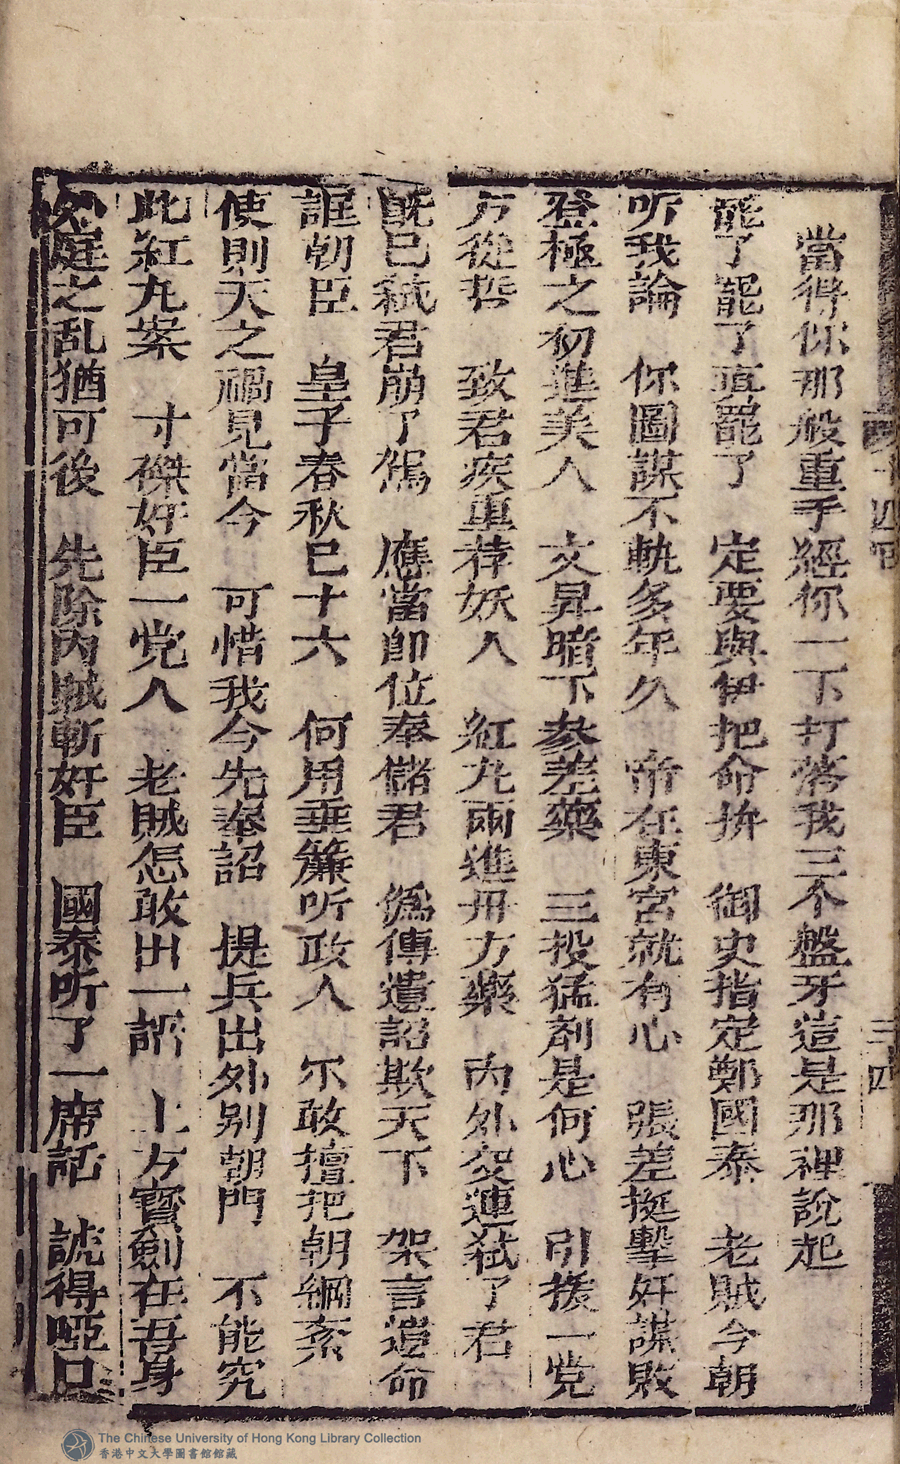 十四回
三四
當得你那般重手經你一下打落我三个盤牙這是那裡說起
罷了罷了真罷了　定要與伊把命拚　御史指定鄭國泰　老賊今朝
听我論　你圖謀不軌多年久　帝在東宮就有心　張差挺擊奸謀敗
登極之初進美人　文昇暗下参差藥　三投猛剤是何心　引援一党
方從哲　致君疾重荐妖人　紅丸兩進丹方藥　內外交連弒了君
既已弒君崩了駕　應當即位奉儲君　偽傳遺詔欺天下　架言遺命
誆朝臣　皇子春秋已十六　何用垂簾听政人　尓敢擅把朝綱紊
使則天之禍見當今　可惜我今先奉詔　提兵出外别朝門　不能究
此紅丸案　寸磔奸臣一党人　老賊怎敢出一詔　上方寶劍在吾身
庭之乱猶可後　先除內賊斬奸臣　國泰听了一席話　諕得啞口
The Chinese University of Hong Kong Library Collection
香港中文大學圖書館館藏